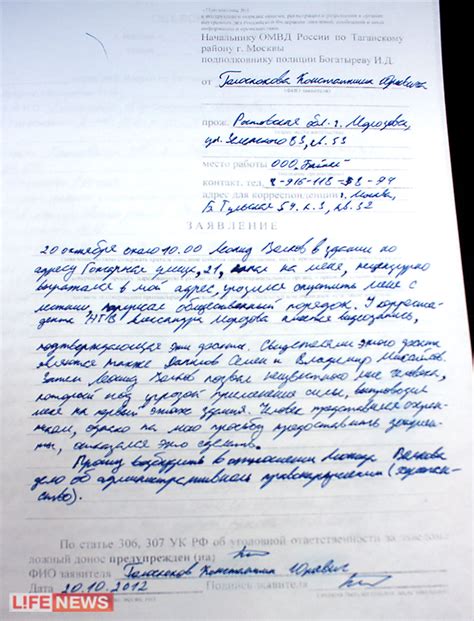 Начальнику ОМВД России по Таганскому
району г. Москвы
подполковнику полиции Богатыреву И.Д.
от Голоскокова Константина Юрьевича
(ФИО заявителя)
прож. Ростовская обл. г. Морозовск,
ул. 53, кв. 53
место работы ООО
контакт. тел. 8-916-118-38-94
адрес для корреспонденции г. Москва,
Б. Тульская 54. к. 3, кв. 32
ЗАЯВЛЕНИЕ
20 октября около 10.00 Леонид Волков в здании по
адресу Гончарная улица, 21, напал на меня, нецензурно
выражался в мой адрес, угрожал спустить меня с
лестницы нарушал общественный порядок. У корреспон-
дента НТВ Александра Морозова имеется видеозапись,
подтверждающая эти факты. Свидетелями этого факта
являются также Данилов Семен и Владимир Михайлов.
Затем Леонид Волков позвал неизвестного мне человека,
который под угрозой применения силы, выпроводил
меня на первый этаж здания. Человек представился охран-
ником, однако на мою просьбу предоставить докумен-
ты, отказался это сделать.
Прошу возбудить в отношении Леонида Волкова
дело об административном правонарушении (хулиган-
ство).
По статье 306, 307 УК РФ об уголовной ответственности за заведомо
ложный донос предупрежден (на)
ФИО заявителя Голоскоков Константин Юрьевич
Дата 20.10.2012 Подпись заявителя
LIFENEWS